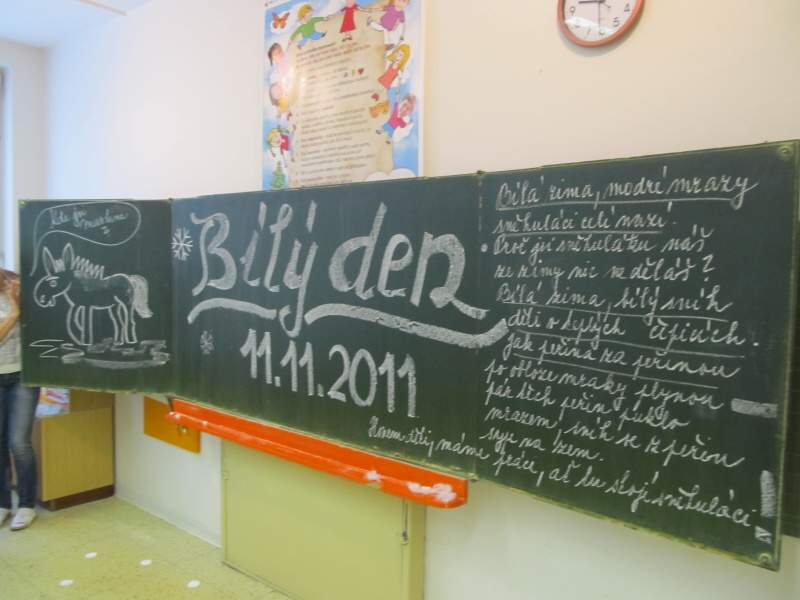 Kde je
Bílý den
11.11.2011
Bílá zima, modré mrazy
sněhuláci celí nazí.
Proč jsi sněhuláku náš
ze zimy nic neděláš?
Bílá zima, bílý sníh
děti v teplých čepicích.
Jak peřina za peřinou
po obloze mraky plynou
pár těch peřin puklo
mrazem, sníh se z peřin
sype na zem.
Honem děti, máme práce, ať tu stojí sněhuláci.